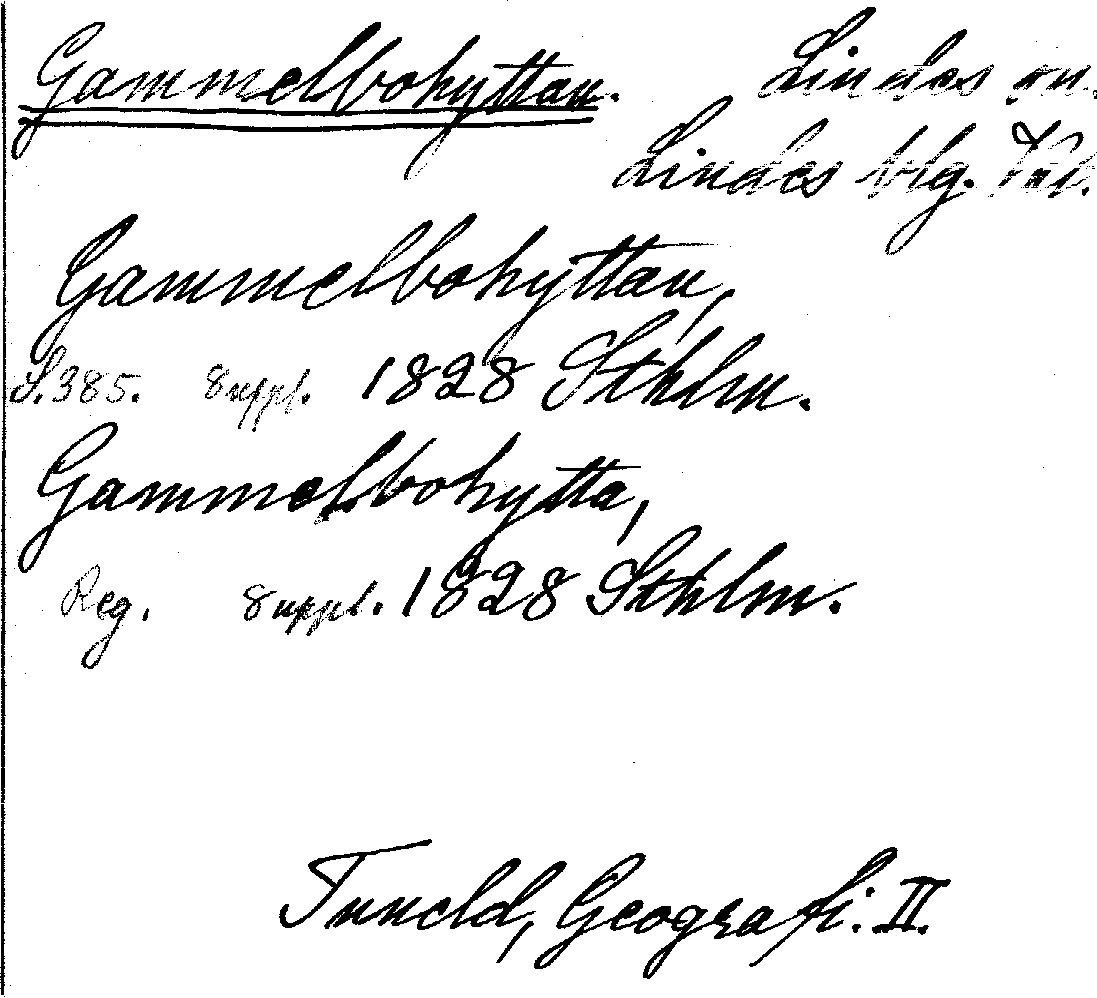 Gammelbohyttan. Lindes sn.
Lindes blg. Väst.
Gammelbohyttan,
S. 385. Suppl. 1828 Sthlm.
Gammelbohytta,
Reg. Suppl. 1828 Sthlm.
Tuneld, Geografi. II.